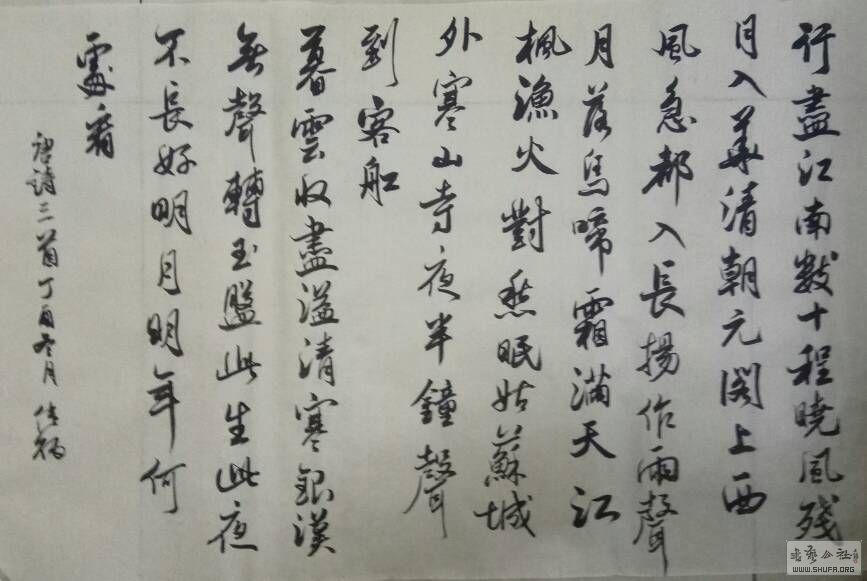 行盡江南數十程曉風残
月入華清朝元閣上西
風急都入長揚作雨聲
月落烏啼霜滿天江
楓漁火對愁眠姑蘇城
外寒山寺夜半鐘聲
到客船
暮雲收盡溢清寒銀漢
無聲轉玉盤此生此夜
不長好明月明年何
處看
唐詩三首丁酉冬月
書藝公社
WWW.SHUFA.ORG